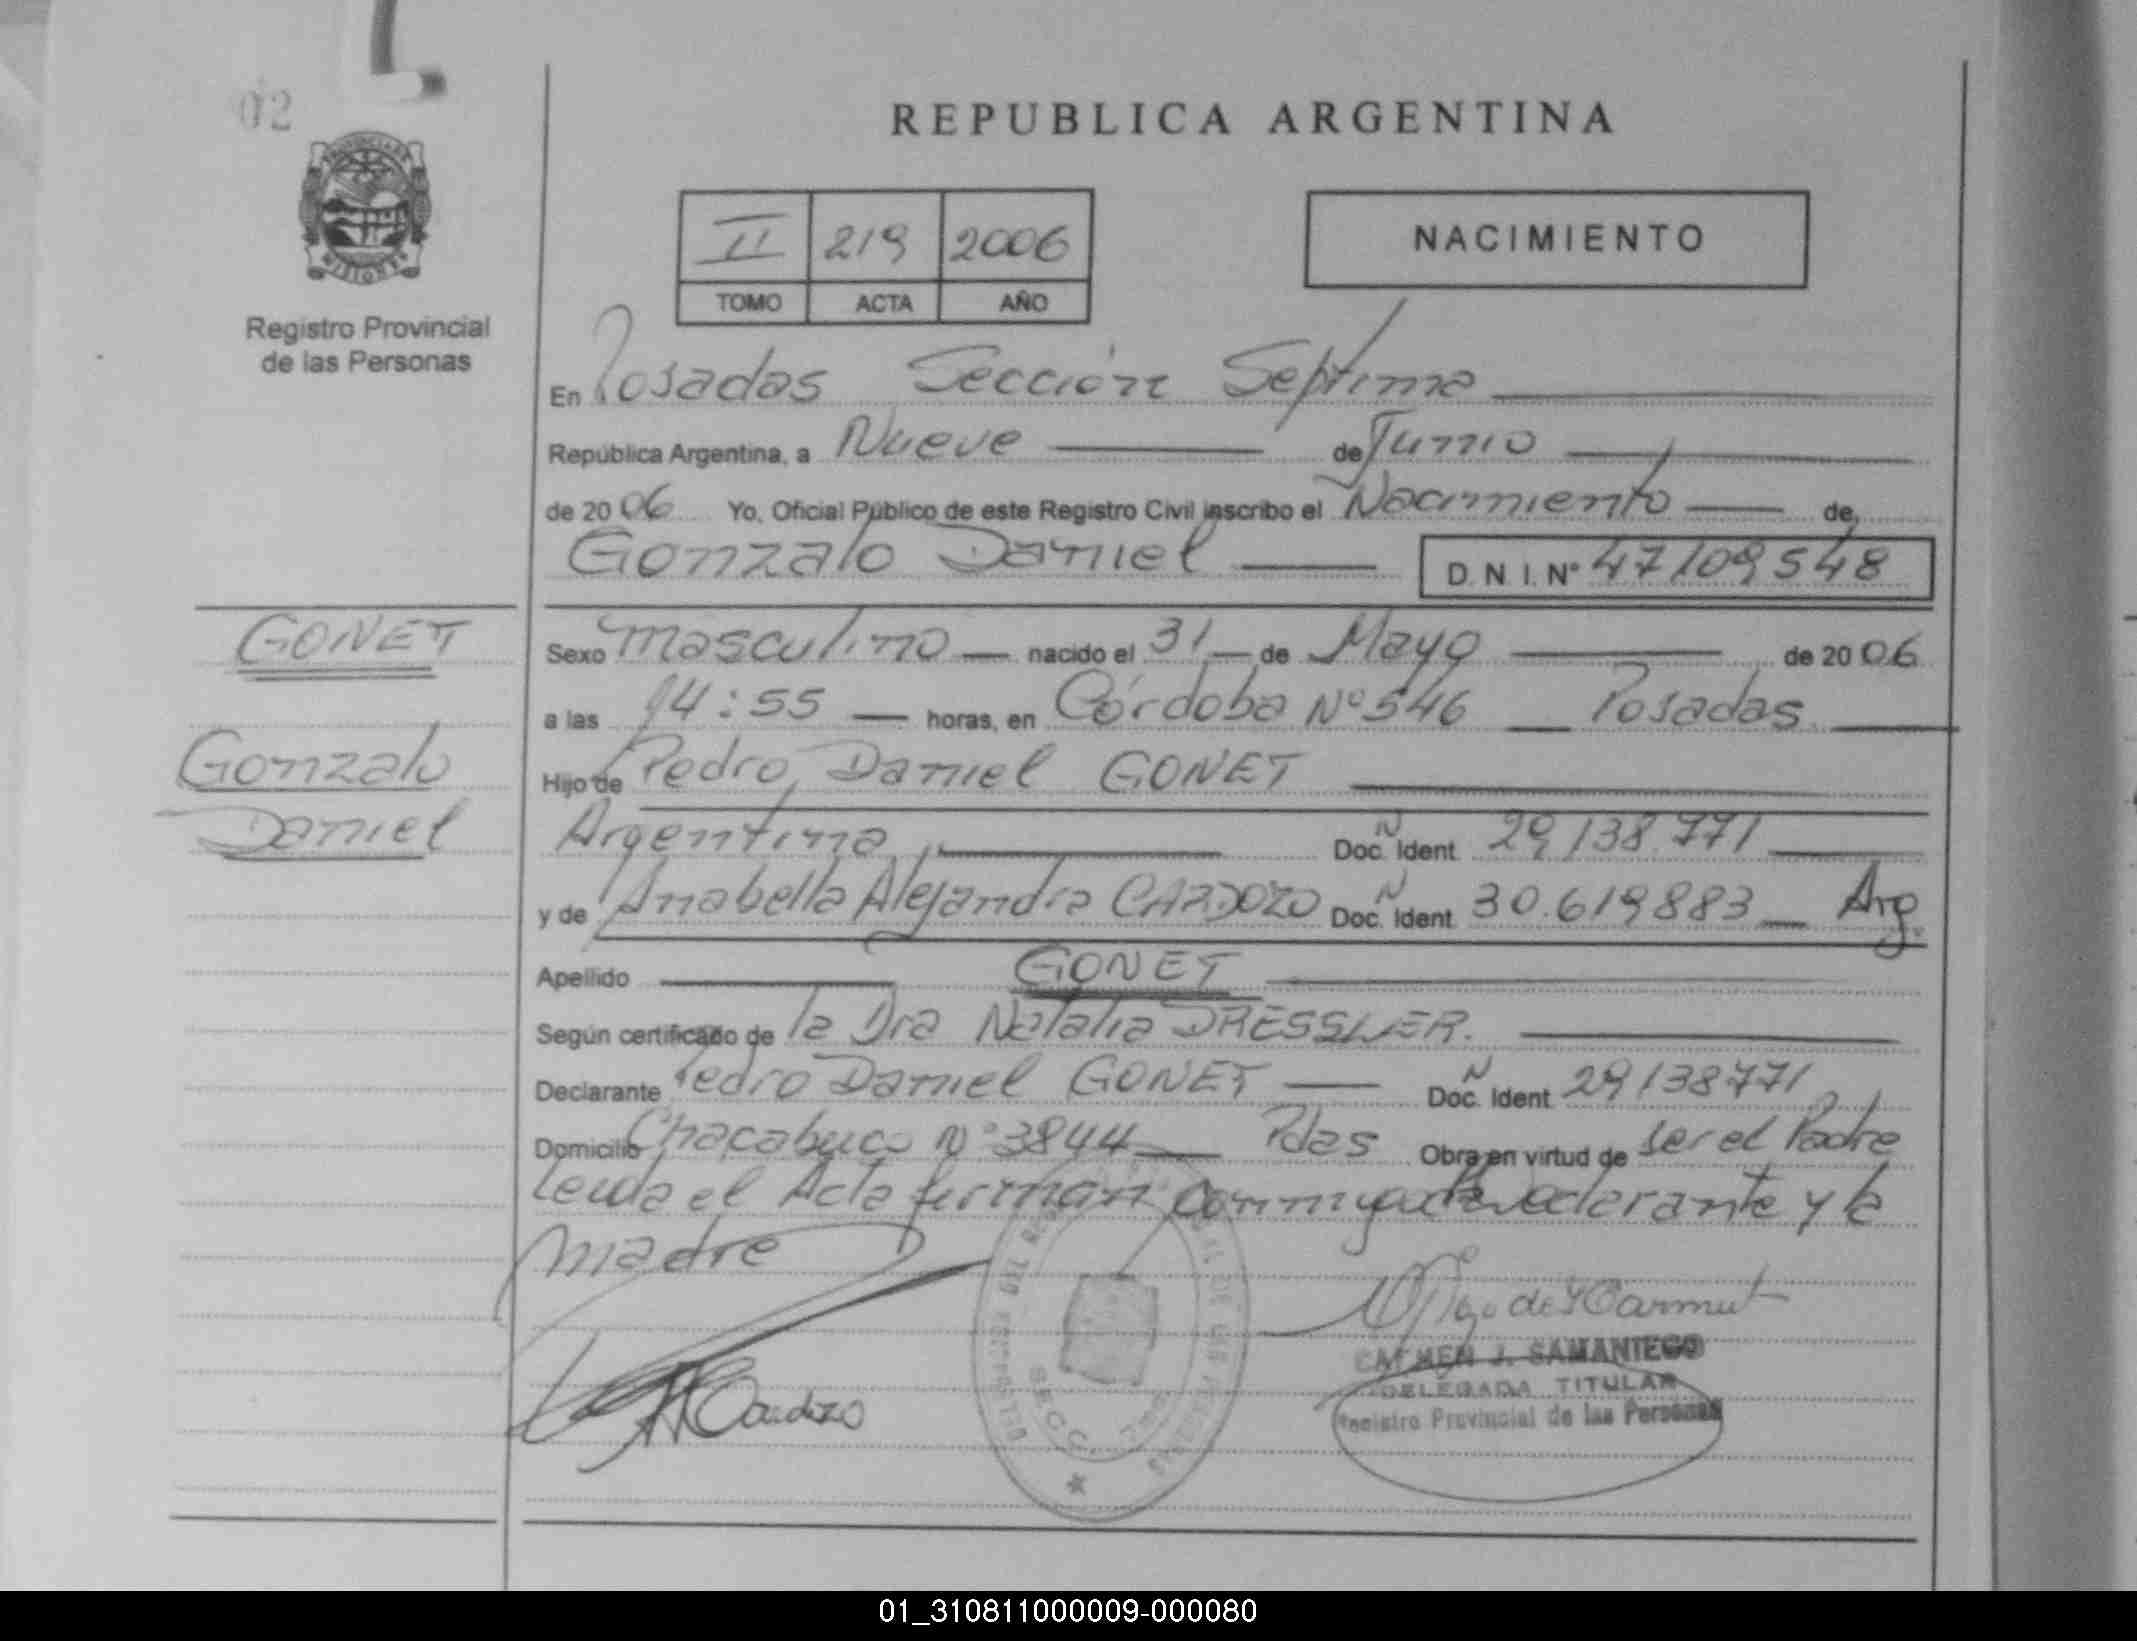 02
REPUBLICA ARGENTINA
PROVINCIA DE
MISIONES
Registro Provincial
de las Personas
II 219 2006
TOMO ACTA AÑO
NACIMIENTO
En Posadas Sección Séptima
República Argentina, a Nueve de Junio
de 2006 Yo, Oficial Público de este Registro Civil inscribo el Nacimiento de
Gonzalo Daniel D. N. I. N° 47109548
GONET
Gonzalo
Daniel
Sexo Masculino nacido el 31 de Mayo de 2006
a las 14:55 horas, en Córdoba Nº 546 Posadas
Hijo de Pedro Daniel GONET
Argentina Doc. Ident. 29138.771
y de Anabella Alejandra CARDOZO Doc. Ident. 30.619883 Arg.
Apellido GONET
Según certificado de la Dra Natalia DRESSLER.
Declarante Pedro Daniel GONET Doc. Ident. 29138771
Domicilio Chacabuco Nº 3844 Pdas Obra en virtud de ser el Padre
Leida el Acta firman conmigo declarante y la
madre
ACardozo
CARMEN J. SAMANIEGO
DELEGADA TITULAR
Registro Provincial de las Personas
01_310811000009-000080